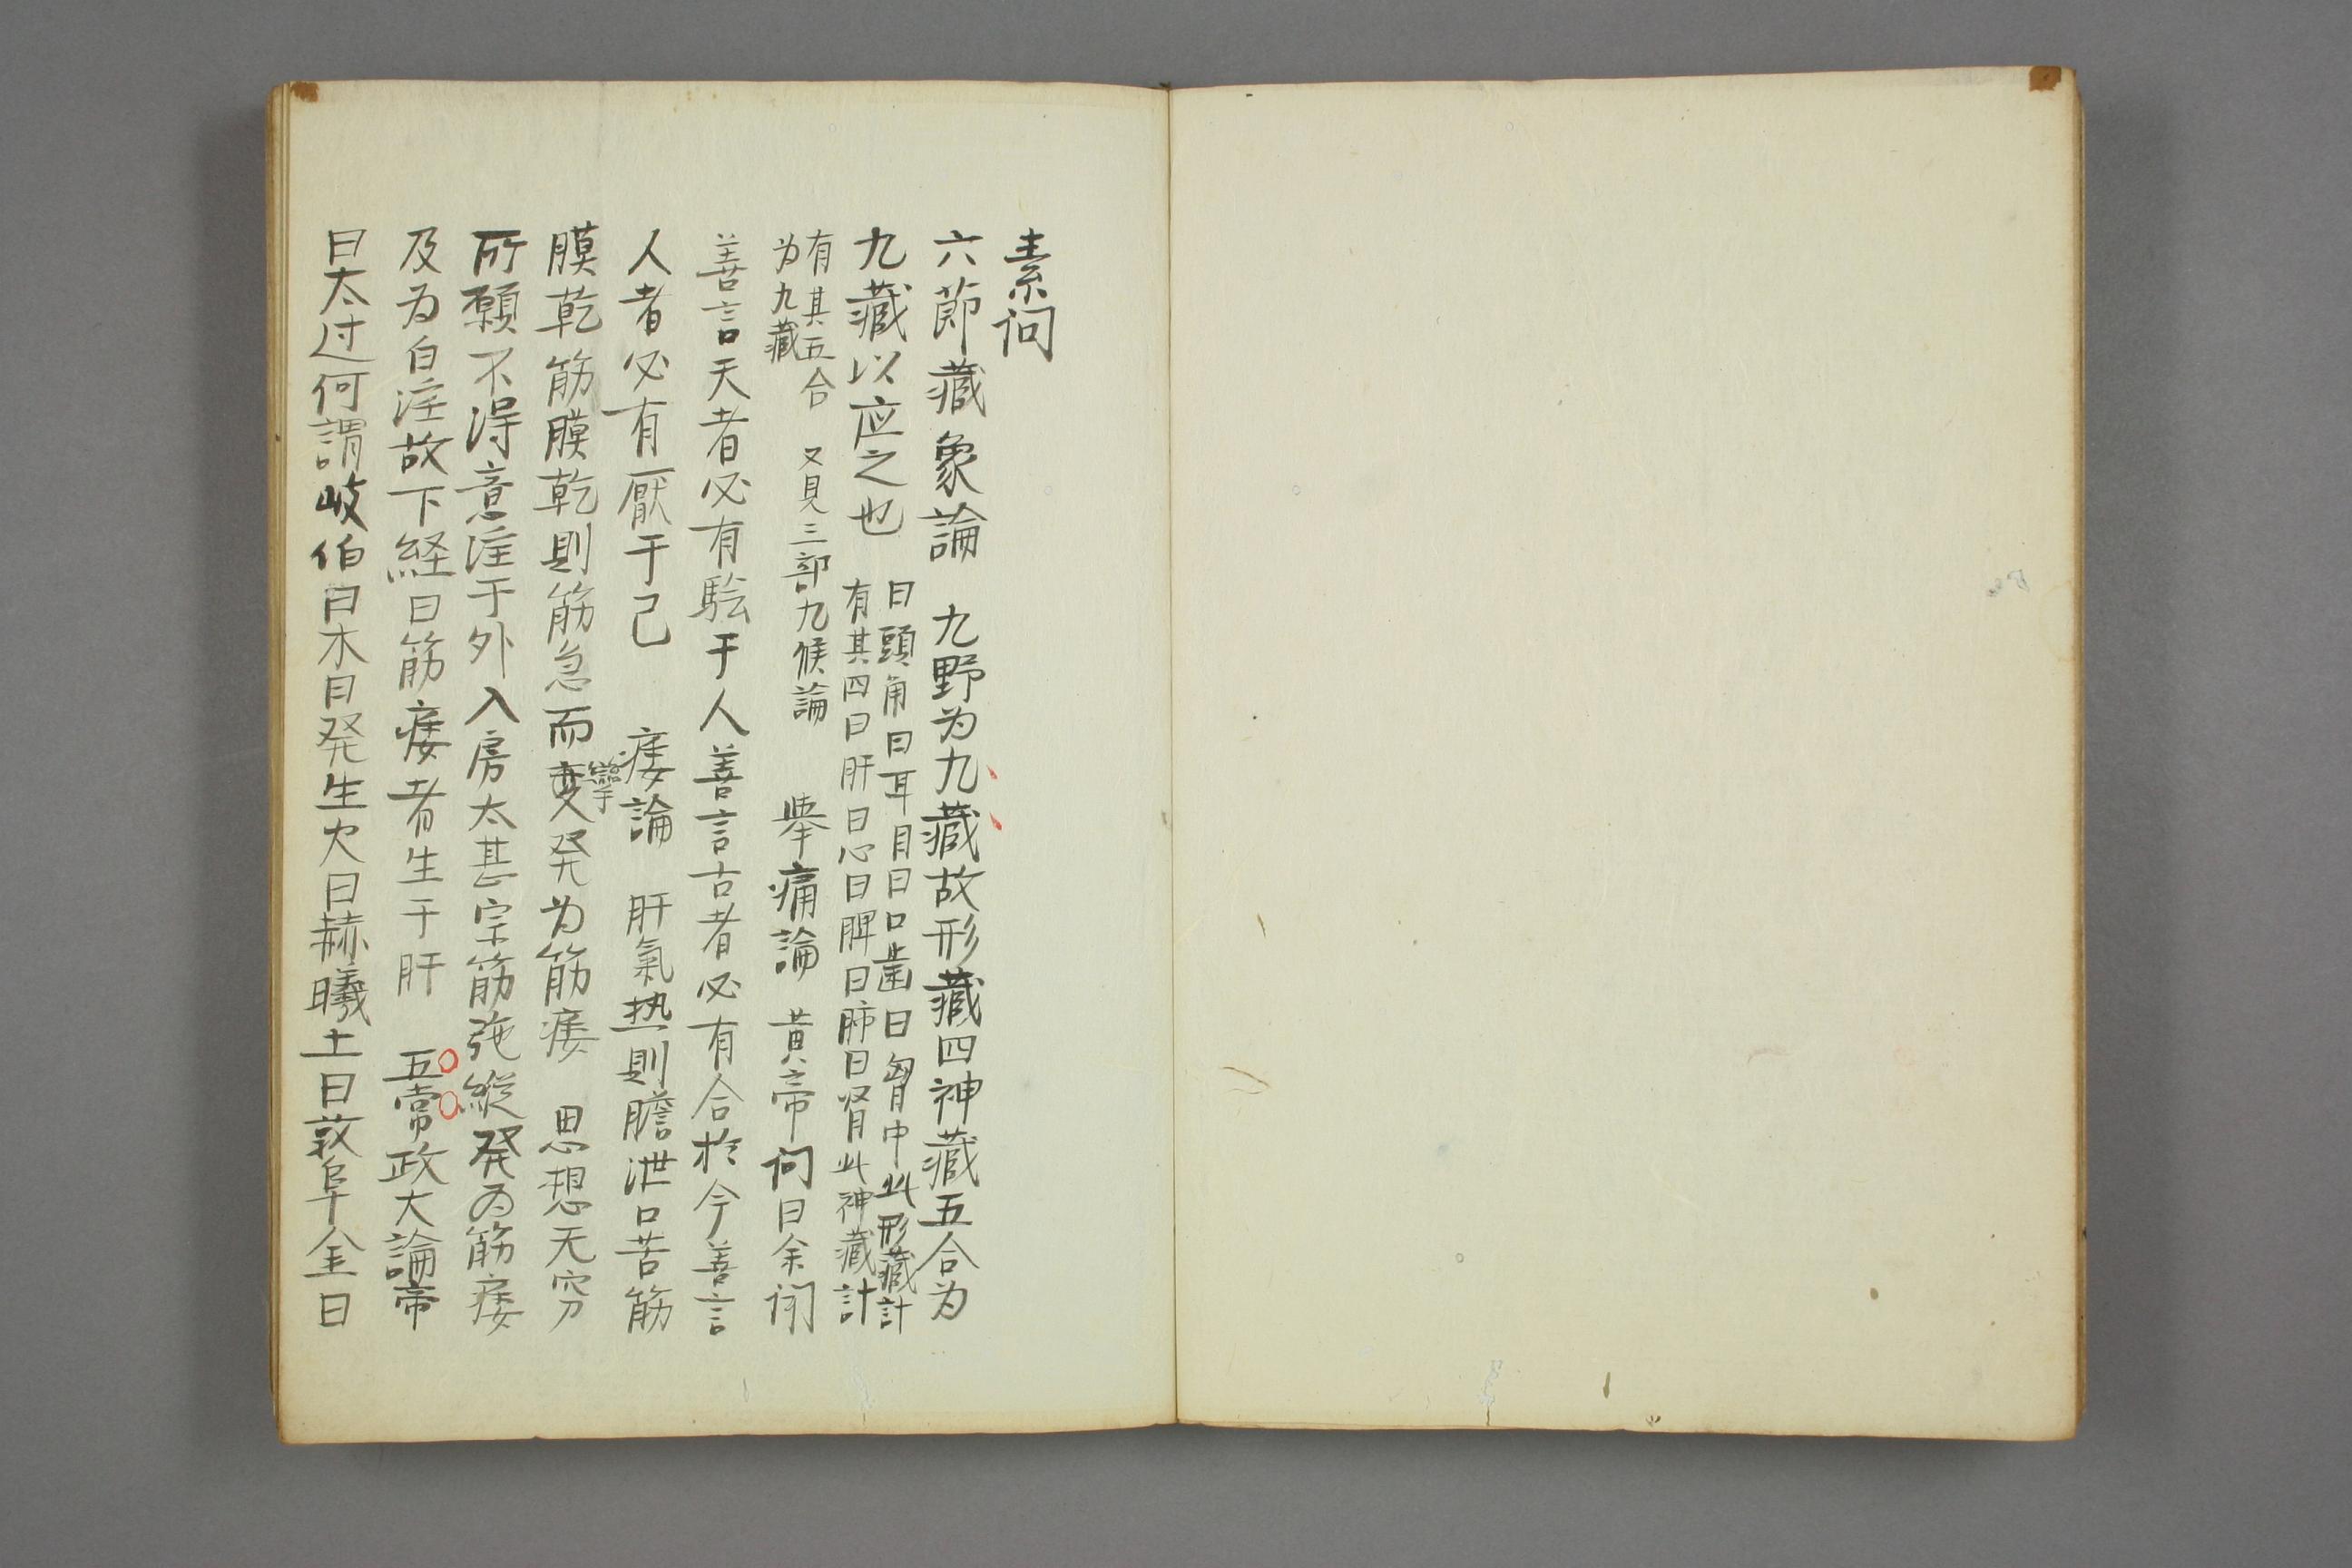 素问
六節藏象論　九野为九藏故形藏四神藏五合为
九藏以应之也
曰頭角曰耳目曰口齒曰胷中此形藏計
有其四曰肝曰心曰脾曰肺曰肾此神藏計
有其五合
为九藏
又見三部九候論
挙痛論　黄帝问曰余闻
善言天者必有験于人善言古者必有合於今善言
人者必有厭于己　痿論　肝氣热則膽泄口苦筋
膜乾筋膜乾則筋急而变発为筋痿　思想无穷
攣
所願不得意淫于外入房太甚宗筋弛縦発为筋痿
及为白淫故下経曰筋痿者生于肝　五常政大論帝
曰太过何謂岐伯曰木曰発生火曰赫曦土曰敦阜金曰